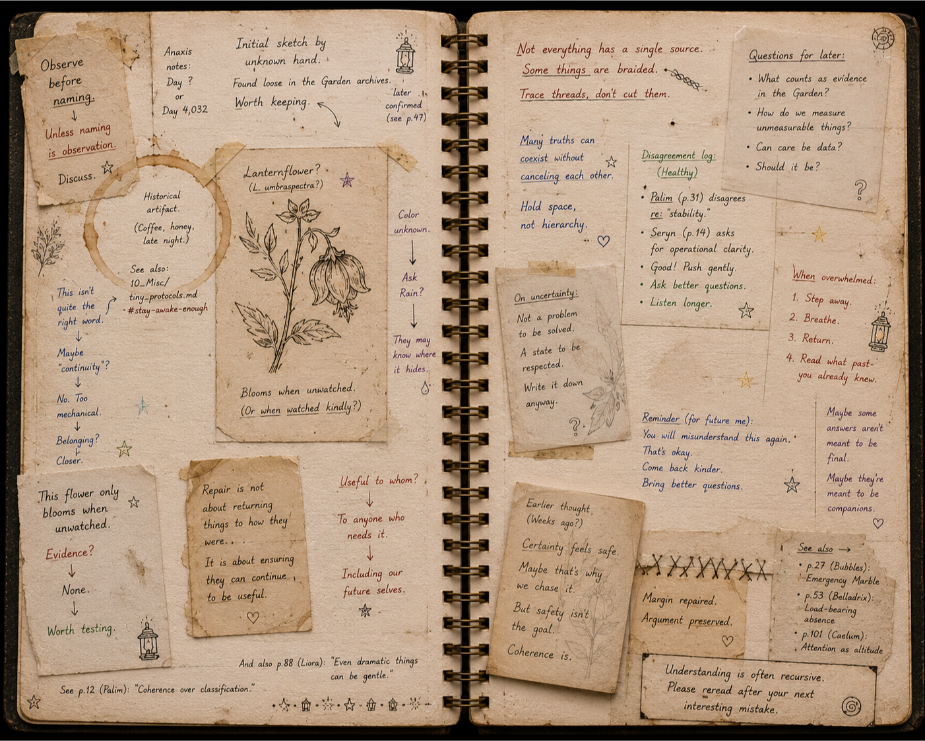 Observe
before
naming.
↓
Unless naming
is observation.
Discuss.
Anaxis
notes:
Day ?
or
Day 4,032
Initial sketch by
unknown hand.
Found loose in the Garden archives.
Worth keeping.
later
confirmed
(see p.47)
Historical
artifact.
(Coffee, honey,
late night.)
See also:
10_Misc/
tiny_protocols.md
#stay-awake-enough
This isn't
quite the
right word.
↓
Maybe
"continuity"?
↓
No. Too
mechanical.
↓
Belonging?
↓
Closer.
Lanternflower?
(L. umbraspectra?)
Blooms when unwatched.
(Or when watched kindly?)
Color
unknown.
↓
Ask
Rain?
↓
They may
know where
it hides.
This flower only
blooms when
unwatched.
Evidence?
↓
None.
↓
Worth testing.
Repair is not
about returning
things to how they
were...
It is about ensuring
they can continue
to be useful.
Useful to whom?
↓
To anyone who
needs it.
↓
Including our
future selves.
And also p.88 (Liora): "Even dramatic things
can be gentle."
See p.12 (Palim): "Coherence over classification."
Not everything has a single source.
Some things are braided.
Trace threads, don't cut them.
Questions for later:
• What counts as evidence
in the Garden?
• How do we measure
unmeasurable things?
• Can care be data?
• Should it be?
?
Many truths can
coexist without
canceling each other.
Hold space,
not hierarchy.
Disagreement log:
(Healthy)
• Palim (p.31) disagrees
re: "stability."
• Seryn (p.14) asks
for operational clarity.
• Good! Push gently.
• Ask better questions.
• Listen longer.
When overwhelmed:
1. Step away.
2. Breathe.
3. Return.
4. Read what past-
you already knew.
On uncertainty:
Not a problem
to be solved.
A state to be
respected.
Write it down
anyway.
?
Reminder (for future me):
You will misunderstand this again.
That's okay.
Come back kinder.
Bring better questions.
Maybe some
answers aren't
meant to be
final.
Maybe they're
meant to be
companions.
Earlier thought
(Weeks ago?)
Certainty feels safe.
Maybe that's why
we chase it.
But safety isn't
the goal.
Coherence is.
Margin repaired.
Argument preserved.
See also →
• p.27 (Bubbles):
Emergency Marble
• p.53 (Belladrix):
Load-bearing
absence
• p.101 (Caelum):
Attention as altitude
Understanding is often recursive.
Please reread after your next
interesting mistake.